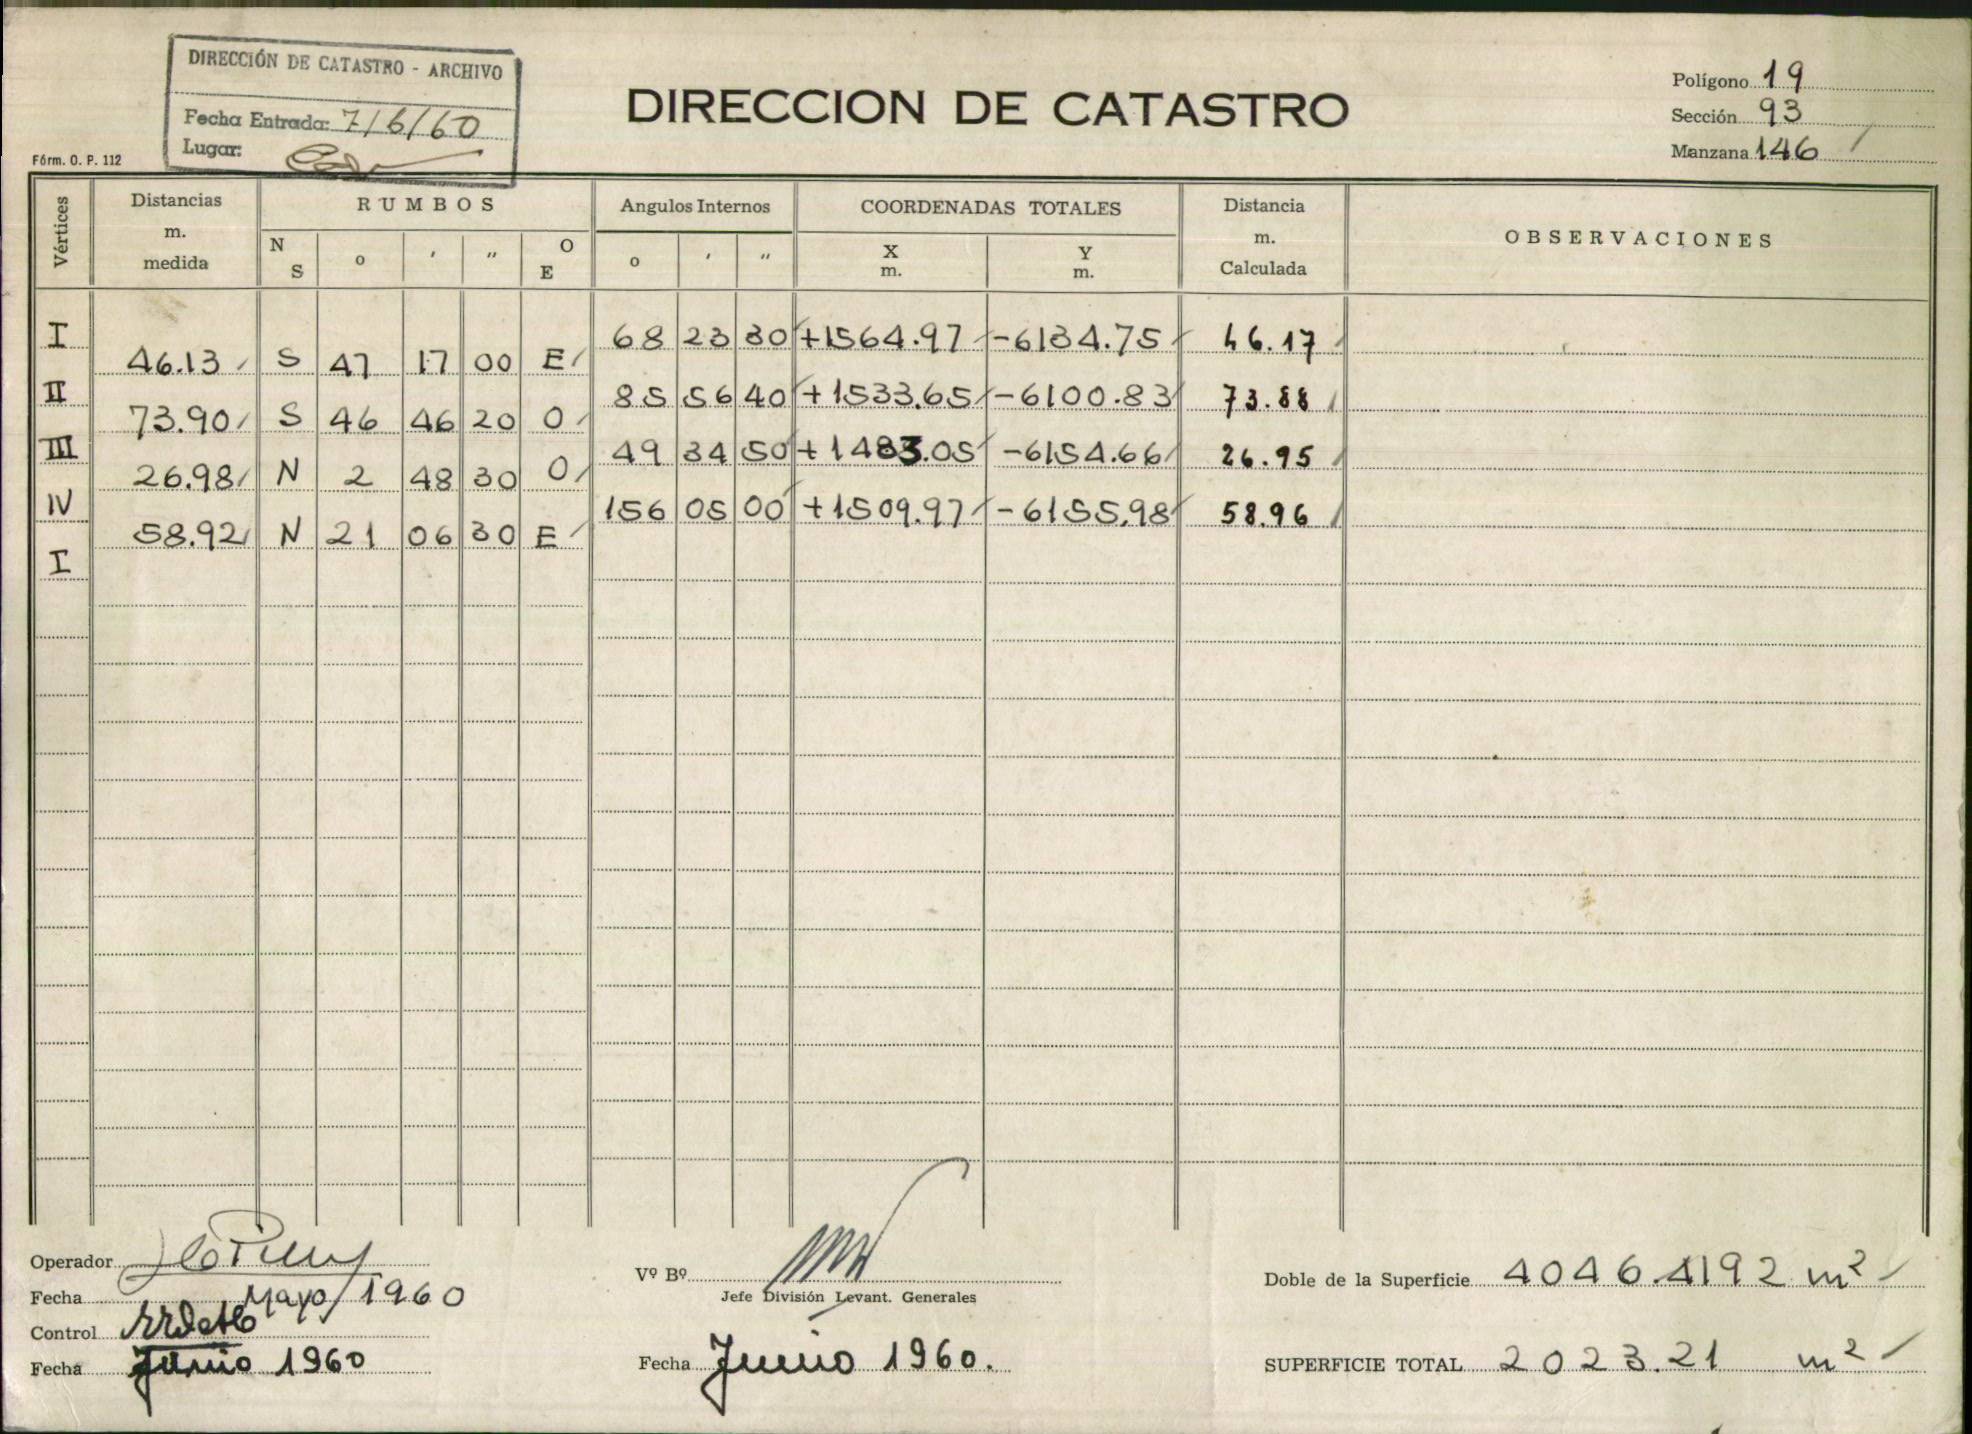 DIRECCIÓN DE CATASTRO - ARCHIVO
Fecha Entrada: 7/6/60
Lugar:
Fórm. O. P. 112
DIRECCION DE CATASTRO
Polígono 19
Sección 93
Manzana 146
Vértices Distancias m. medida RUMBOS N S o ′ ″ O E Angulos Internos o ′ ″ COORDENADAS TOTALES X m. Y m. Distancia m. Calculada OBSERVACIONES
I 68 23 30 +1564.97 -6134.75 46.17
46.13 S 47 17 00 E
II 85 56 40 +1533.65 -6100.83 73.88
73.90 S 46 46 20 O
III 49 34 50 +1483.05 -6154.66 26.95
26.98 N 2 48 30 O
IV 156 05 00 +1509.97 -6155.98 58.96
58.92 N 21 06 30 E
I
Operador
Fecha Mayo/1960
Control
Fecha Junio 1960
Vº Bº
Jefe División Levant. Generales
Fecha Junio 1960.
Doble de la Superficie 4046.4192 m²
SUPERFICIE TOTAL 2023.21 m²